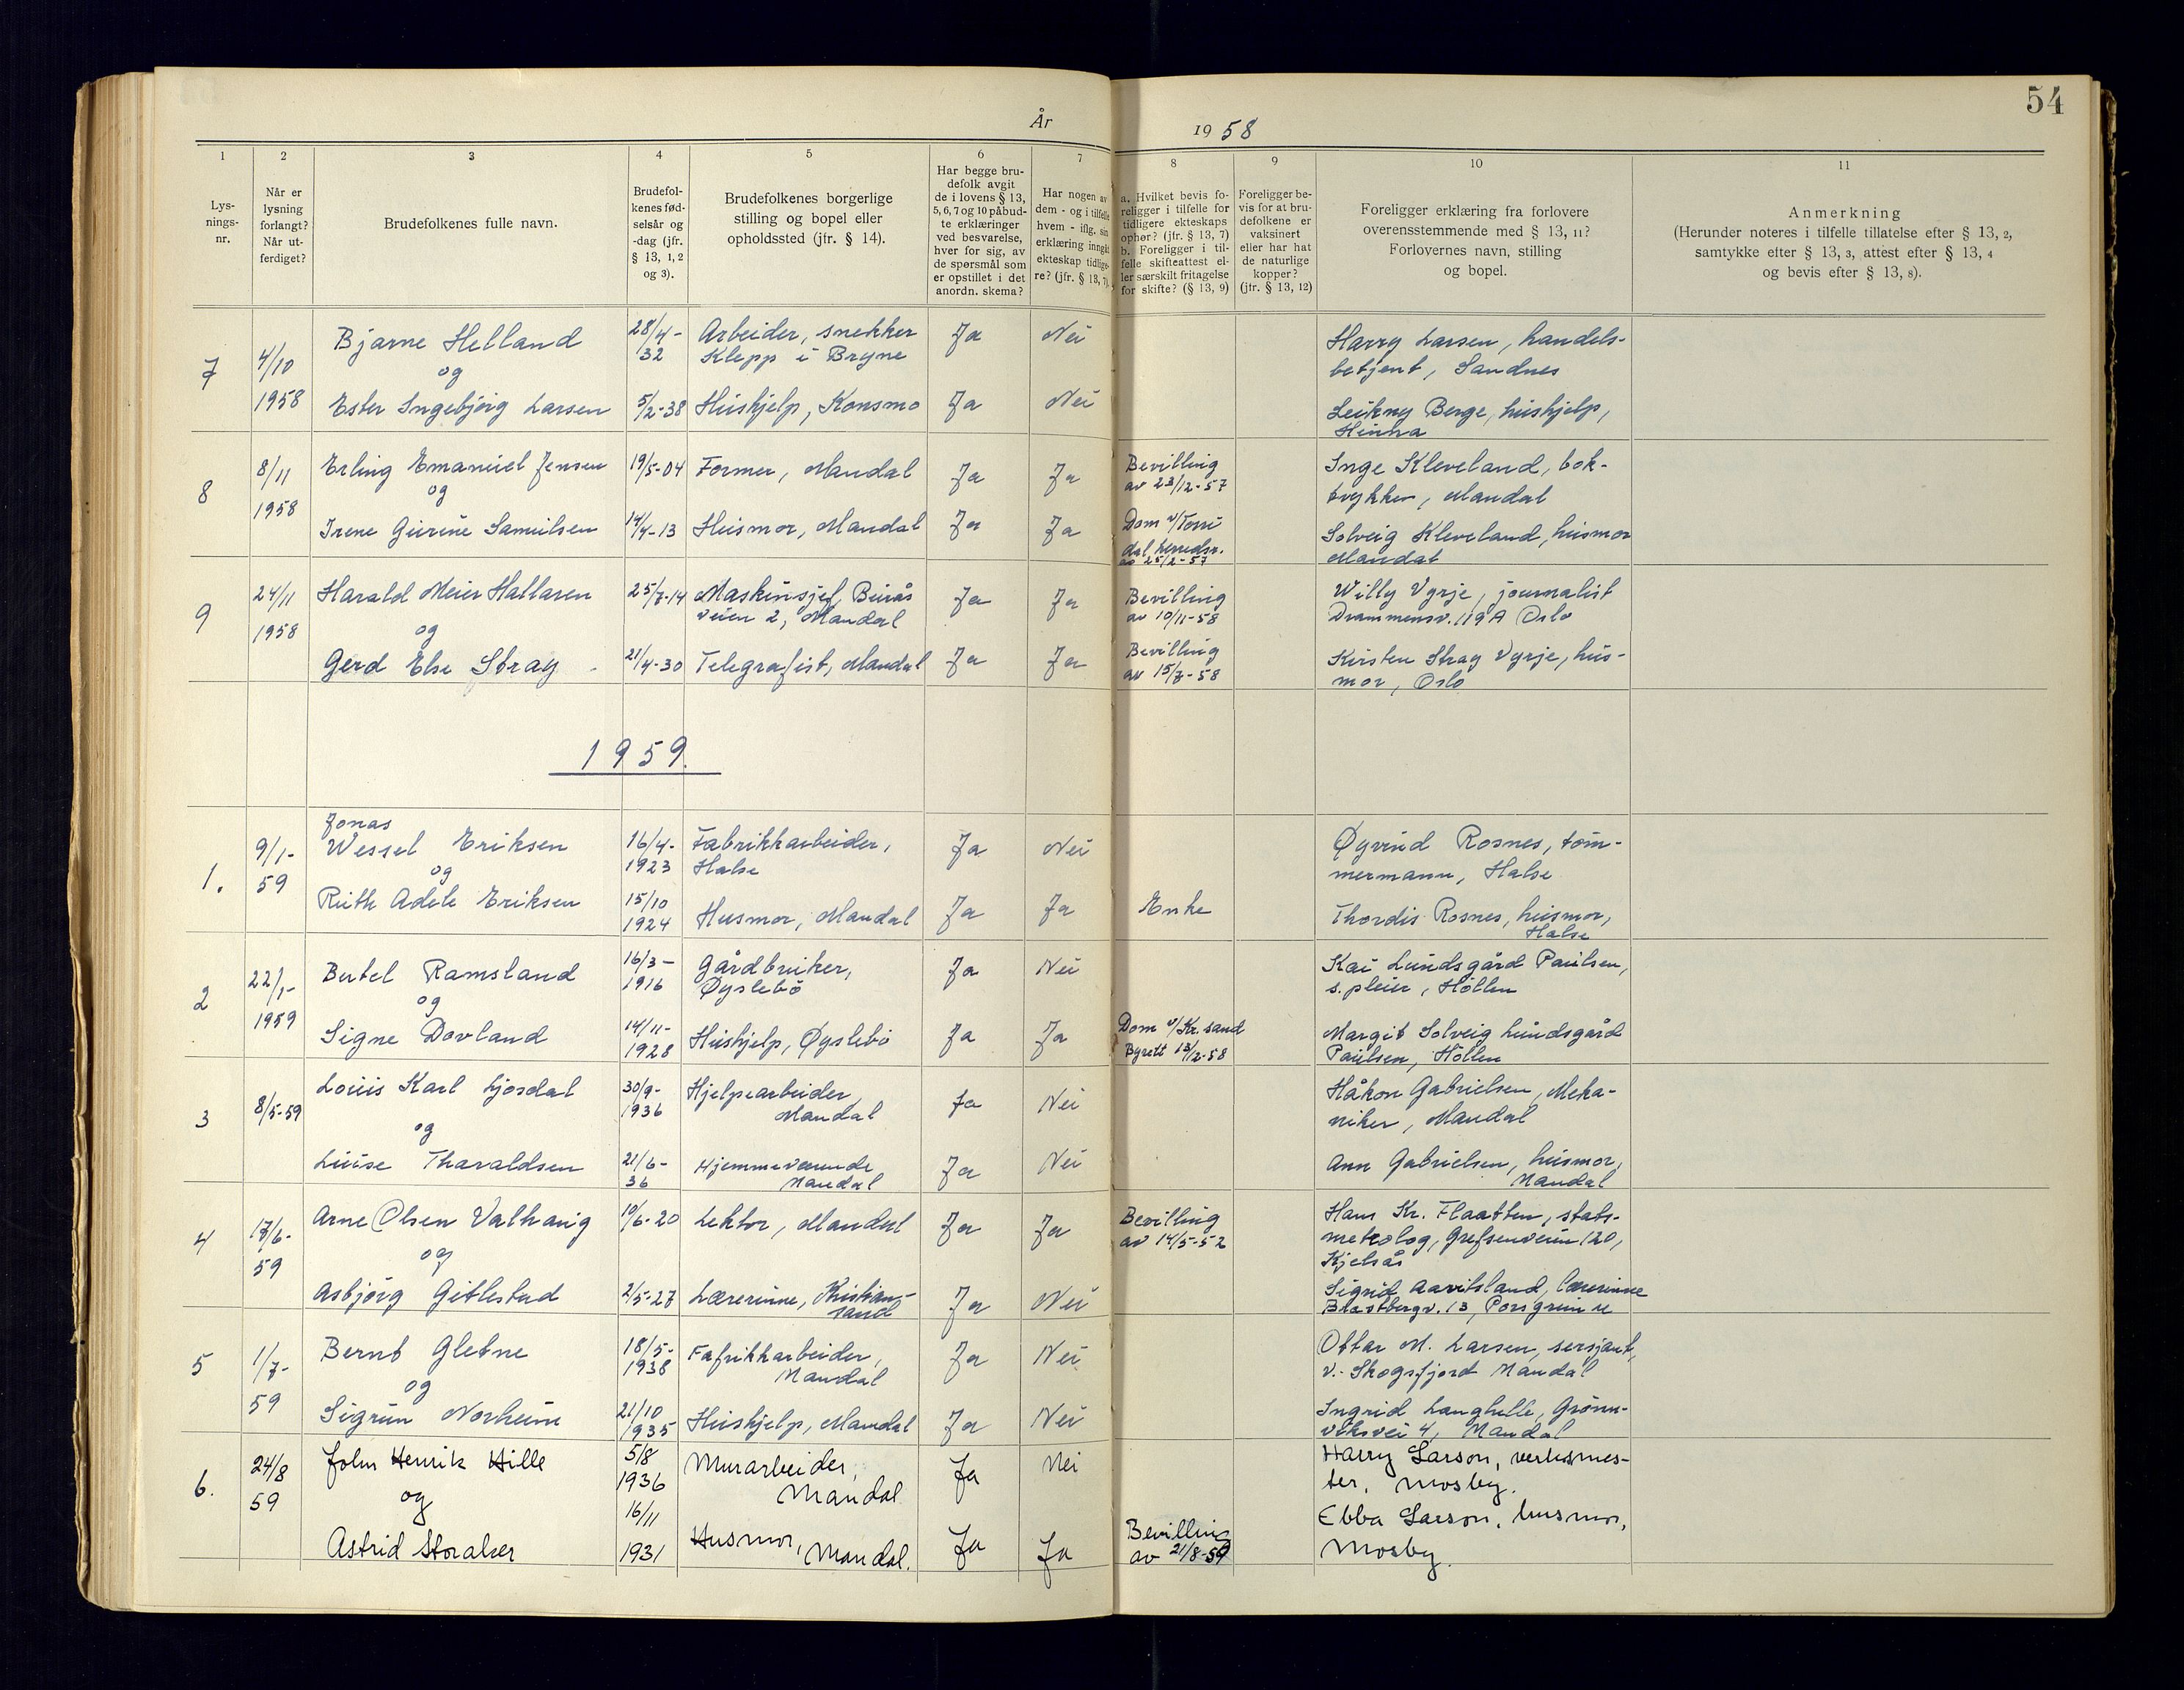 54
År 1958
1 2 3 4 5 6 7 8 9 10 11
Lys-
nings-
nr.
Når er
lysning
forlangt?
Når ut-
ferdiget?
Brudefolkenes fulle navn.
Brudefol-
kenes fød-
selsår og
-dag (jfr.
§ 13, 1, 2
og 3).
Brudefolkenes borgerlige
stilling og bopel eller
opholdssted (jfr. § 14).
Har begge bru-
defolk avgit
de i lovens § 13,
5, 6, 7 og 10 påbud-
te erklæringer
ved besvarelse,
hver for sig, av
de spørsmål som
er opstillet i det
anordn. skema?
Har nogen av
dem - og i tilfelle
hvem - iflg. sin
erklæring inngått
ekteskap tidlige-
re? (jfr. § 13, 7).
a. Hvilket bevis fo-
religger i tilfelle for
tidligere ekteskaps
ophør? (jfr. § 13, 7)
b. Foreligger i til-
felle skifteattest el-
ler særskilt fritagelse
for skifte? (§ 13, 9)
Foreligger be-
vis for at bru-
defolkene er
vaksinert
eller har hat
de naturlige
kopper?
(jfr. § 13, 12)
Foreligger erklæring fra forlovere
overensstemmende med § 13, 11?
Forlovernes navn, stilling
og bopel.
Anmerkning
(Herunder noteres i tilfelle tillatelse efter § 13, 2,
samtykke efter § 13, 3, attest efter § 13, 4
og bevis efter § 13, 8).
7
4/10
1958
Bjarne Helland
og
Ester Ingebjørg Larsen
28/4-
32
5/2-38
Arbeider, snekker
Klepp i Bryne
Hushjelp, Konsmo
Ja Nei
Ja Nei
Harry Larsen, handels-
betjent, Sandnes
Leikny Berge, hushjelp,
Hinna
8
8/11
1958
Erling Emanuel Jensen
og
Irene Gurine Samuelsen
19/5-04
14/4-13
Former, Mandal
Husmor, Mandal
Ja Ja
Ja Ja
Bevilling
av 23/12-57
Dom v/Torri
dal herredsr.
av 25/2-57
Inge Kleveland, bok-
trykker, Mandal
Solveig Kleveland, husmor
Mandal
9
24/11
1958
Harald Meier Hallaren
og
Gerd Else Stray
25/7-14
21/4-30
Maskinsjef, Buås
veien 2, Mandal
Telegrafist, Mandal
Ja Ja
Ja Ja
Bevilling
av 10/11-58
Bevilling
av 15/7-58
Willy Vgrje, journalist
Drammensv. 119A Oslo
Kirsten Stray Vgrje, hus-
mor, Oslo
1959.
1.
9/1-
59
Jonas
Wessel Eriksen
og
Ruth Adele Eriksen
16/4-
1923
15/10
1924
Fabrikkarbeider,
Halse
Husmor, Mandal
Ja Nei
Ja Ja
Enke
Øyvind Rosnes, tøm-
mermann, Halse
Thordis Rosnes, husmor,
Halse
2
22/1-
1959
Bertel Ramsland
og
Signe Dovland
16/3-
1916
14/11-
1928
Gårdbruker,
Øyslebø
Hushjelp, Øyslebø
Ja Nei
Ja Ja
Dom v/Kr.sand
Byrett 13/2-58
Kai Lundsgård Paulsen,
s. pleier, Høllen
Margit Solveig Lundsgård
Paulsen, Høllen
3
8/5-59
Louis Karl Ljosdal
og
Luise Tharaldsen
30/9-
1936
21/6-
36
Hjelpearbeider,
Mandal
Hjemmeværende
Mandal
Ja Nei
Ja Nei
Håkon Gabrielsen, Meka-
niker, Mandal
Ann Gabrielsen, husmor,
Mandal
4
17/6-
59
Arne Olsen Valhaug
og
Asbjørg Gitlestad
10/6-20
2/5-27
Lektor, Mandal
Lærerinne, Kristian-
sand
Ja Ja
Ja Nei
Bevilling
av 14/5-52
Hans Kr. Flaatten, stats-
metrolog, Grefsenveien 120,
Kjelsås
Sigrid Aavitsland, lærerinne
13, Porsgrunn
5
1/7-
59
Bernt Gletne
og
Sigrun Norheim
18/5-
1938
21/10
1935
Fafrikkarbeider,
Mandal
Hushjelp, Mandal
Ja Nei
Ja Nei
Ottar M. Larsen, sersjant,
v. Skogsfjord Mandal
Ingrid Langhelle, Grønn-
viksvei 4, Mandal
6.
24/8
59
John Henrik Hille
og
Astrid Storaker
5/8
1936
16/11
1931
Murarbeider,
Mandal
Husmor, Mandal.
Ja Nei
Ja Ja
Bevilling
av 21/8-59
Harry Larson, verksmes-
ter, Mosby.
Ebba Larson, husmor,
Mosby.